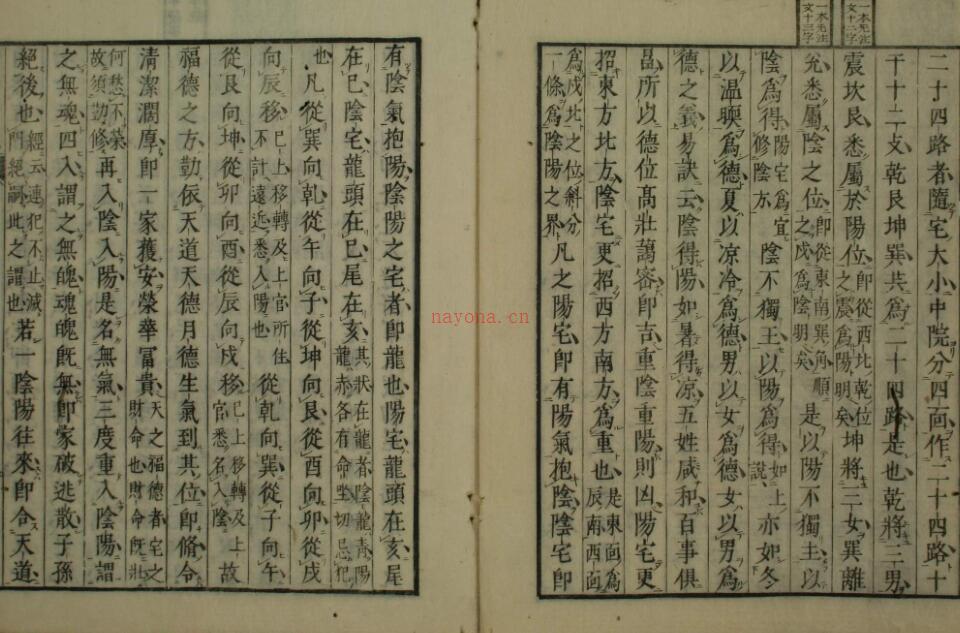 一本无注文十二字
一本无注文十三字
二十四路者隨宅大小中院分四面作二十四路十
干十二支乾艮坤巽共為二十四路是也乾將三男
震坎艮悉屬於陽位即從西北乾位之震為陽明矣坤將三女巽離
兊悉屬陰之位即從東南巽角順之戌為陰明矣是以陽不獨王以
陰為得陽宅為宜修陰方陰不獨王以陽為得如上說亦如冬
以温暖為德夏以凉冷為德男以女為德女以男為
德之義易訣云陰得陽如暑得凉五姓咸和百事俱
昌所以德位高壯藹密即吉重陰重陽則凶陽宅更
招東方北方陰宅更招西方南方為重也是東面為辰南西面
為戌北之位斜分一條為陰陽之界凡之陽宅即有陽氣抱陰陰宅即
有陰氣抱陽陰陽之宅者即龍也陽宅龍頭在亥尾
在巳陰宅龍頭在巳尾在亥其狀在龍者陰龍青陽龍赤各有命坐切忌犯
也凡從巽向乾從午向子從坤向艮從酉向卯從戌
向辰移已上移轉及上官所住不計遠近悉入陽也從乾向巽從子向午
從艮向坤從卯向酉從辰向戌移已上移轉及上官悉名入陰故
福德之方勤依天道天德月德生氣到其位即脩令
清潔濶厚即一家獲安榮華冨貴天之福德者宅之財命也財命既壯
何愁不榮故須勤修再入陰入陽是名無氣三度重入陰陽謂
之無魂四入謂之無魄魂魄既無即家破逃散子孫
絕後也經云連犯不止滅門絕嗣此之謂也若一陰陽往來即令天道
nayona.cn